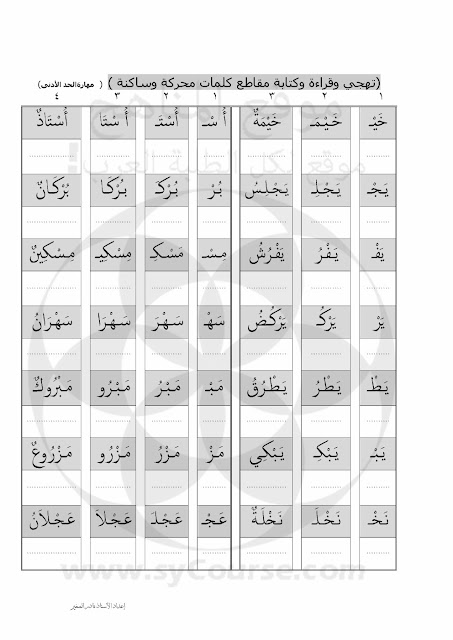 (تهجي وقراءة وكتابة مقاطع كلمات محركة وساكنة ) ( مهارة الحد الأدنى)
١ ٢ ٣ ١ ٢ ٣ ٤
خَيْـ خَيْـمَـ خَيْمَةٌ أُ سْـ أُسْتَـ أُ سْتَا أُسْتَاذٌ
يَجْـ يَجْـلِـ يَجْلِسُ بُرْ بُرْكَـ بُرْكَا بُرْكَانٌ
يَفْـ يَفْـرُ يَفْرُشُ مِسْـ مَسْكِـ مِسْكِيـ مِسْكِينٌ
يَرْ يَرْكُـ يَرْكُضُ سَهْـ سَهْرَ سَهْرَا سَهْرَانُ
يَطْـ يَطْرُ يَطْرُقُ مَبْـ مَبْرُ مَبْرُو مَبْرُوكٌ
يَبْـ يَبْكِـ يَبْكِي مَزْ مَزْرُ مَزْرُو مَزْرُوعٌ
نَخْـ نَخْـلَـ نَخْلَةٌ عَجْـ عَجْلَـ عَجْلاَ عَجْلاَنُ
موقع المناهج
موقع لكل الطلبة العرب!
www.syCourse.com